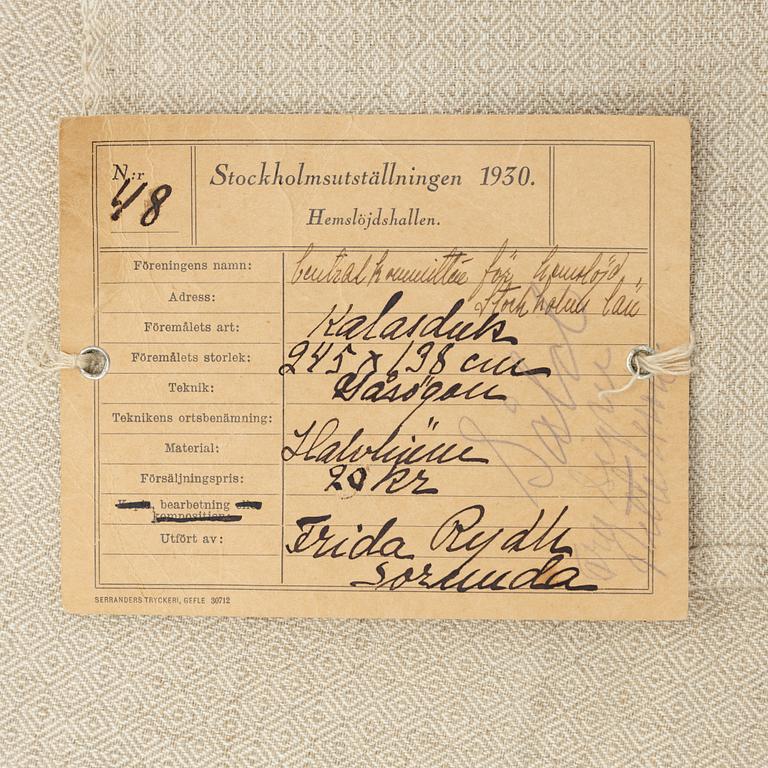 N:r
48
Stockholmsutställningen 1930.
Hemslöjdshallen.
Föreningens namn: Centralkommittén för hemslöjd,
Adress: Stockholms län
Föremålets art: Kalasduk
Föremålets storlek: 245 x 138 cm
Teknik: Gåsögon
Teknikens ortsbenämning:
Material: Halvlinne
Försäljningspris: 20 kr
bearbetning
komposition:
Utfört av: Frida Rydh
Sorunda
Såld
SERRANDERS TRYCKERI, GEFLE 30712